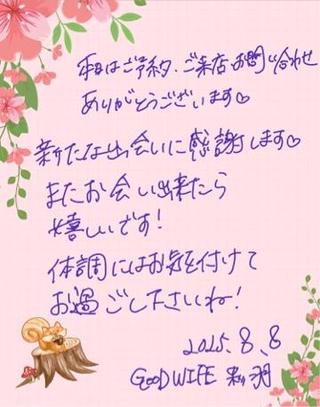 本日はご予約、ご来店、お問い合わせ
ありがとうございます♡
新たな出会いに感謝します♡
またお会い出来たら
嬉しいです!
体調にはお気を付けて
お過ごし下さいね!
2025.8.8
GOOD WIFE